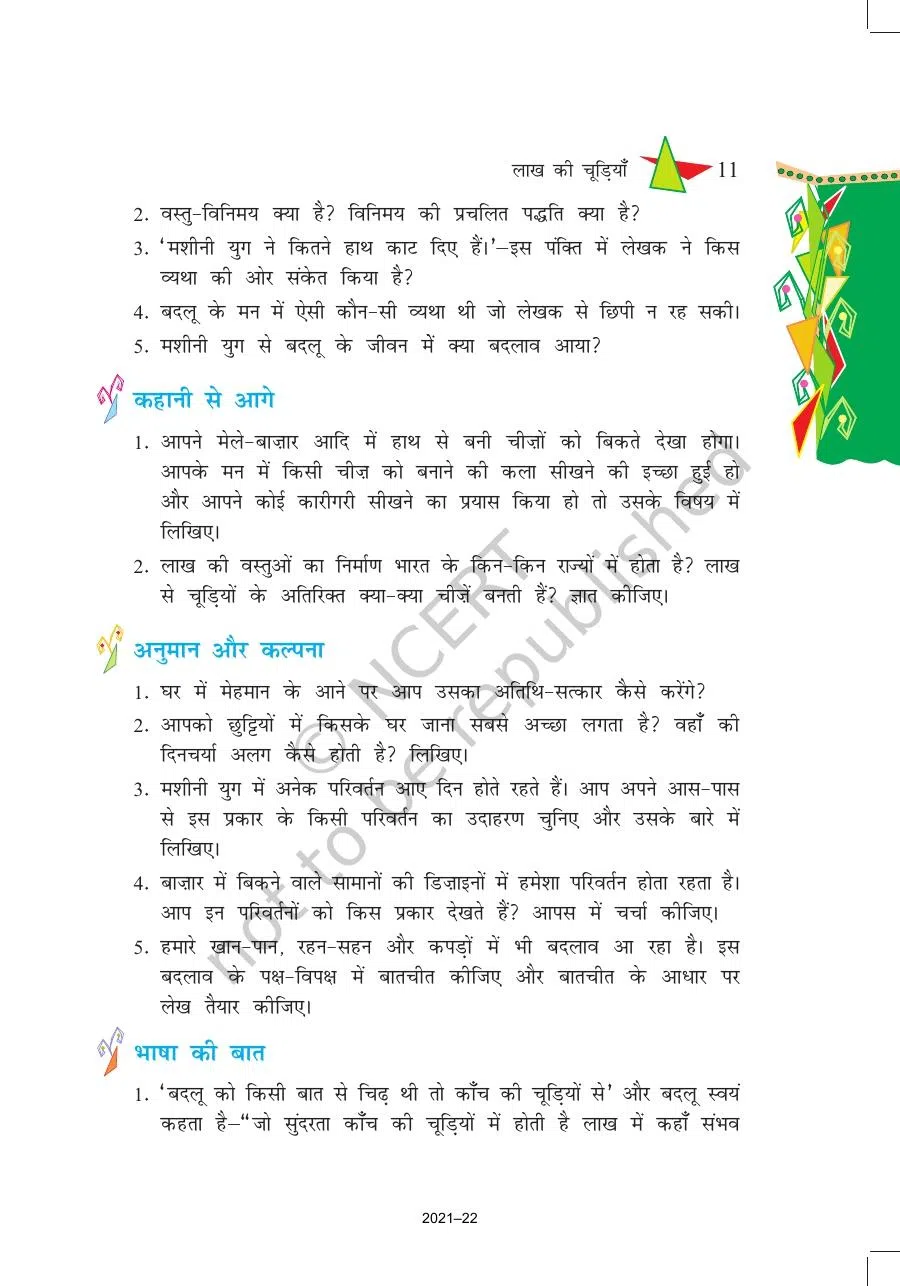 लाख की चूड़ियाँ 11
2. वस्तु-विनिमय क्या है? विनिमय की प्रचलित पद्धति क्या है?
3. ‘मशीनी युग ने कितने हाथ काट दिए हैं।’–इस पंक्ति में लेखक ने किस
व्यथा की ओर संकेत किया है?
4. बदलू के मन में ऐसी कौन-सी व्यथा थी जो लेखक से छिपी न रह सकी।
5. मशीनी युग से बदलू के जीवन में क्या बदलाव आया?
कहानी से आगे
1. आपने मेले-बाज़ार आदि में हाथ से बनी चीज़ों को बिकते देखा होगा।
आपके मन में किसी चीज़ को बनाने की कला सीखने की इच्छा हुई हो
और आपने कोई कारीगरी सीखने का प्रयास किया हो तो उसके विषय में
लिखिए।
2. लाख की वस्तुओं का निर्माण भारत के किन-किन राज्यों में होता है? लाख
से चूड़ियों के अतिरिक्त क्या-क्या चीज़ें बनती हैं? ज्ञात कीजिए।
अनुमान और कल्पना
1. घर में मेहमान के आने पर आप उसका अतिथि-सत्कार कैसे करेंगे?
2. आपको छुट्टियों में किसके घर जाना सबसे अच्छा लगता है? वहाँ की
दिनचर्या अलग कैसे होती है? लिखिए।
3. मशीनी युग में अनेक परिवर्तन आए दिन होते रहते हैं। आप अपने आस-पास
से इस प्रकार के किसी परिवर्तन का उदाहरण चुनिए और उसके बारे में
लिखिए।
4. बाज़ार में बिकने वाले सामानों की डिज़ाइनों में हमेशा परिवर्तन होता रहता है।
आप इन परिवर्तनों को किस प्रकार देखते हैं? आपस में चर्चा कीजिए।
5. हमारे खान-पान, रहन-सहन और कपड़ों में भी बदलाव आ रहा है। इस
बदलाव के पक्ष-विपक्ष में बातचीत कीजिए और बातचीत के आधार पर
लेख तैयार कीजिए।
भाषा की बात
1. ‘बदलू को किसी बात से चिढ़ थी तो काँच की चूड़ियों से’ और बदलू स्वयं
कहता है–“जो सुंदरता काँच की चूड़ियों में होती है लाख में कहाँ संभव
2021–22
© NCERT
not to be republished